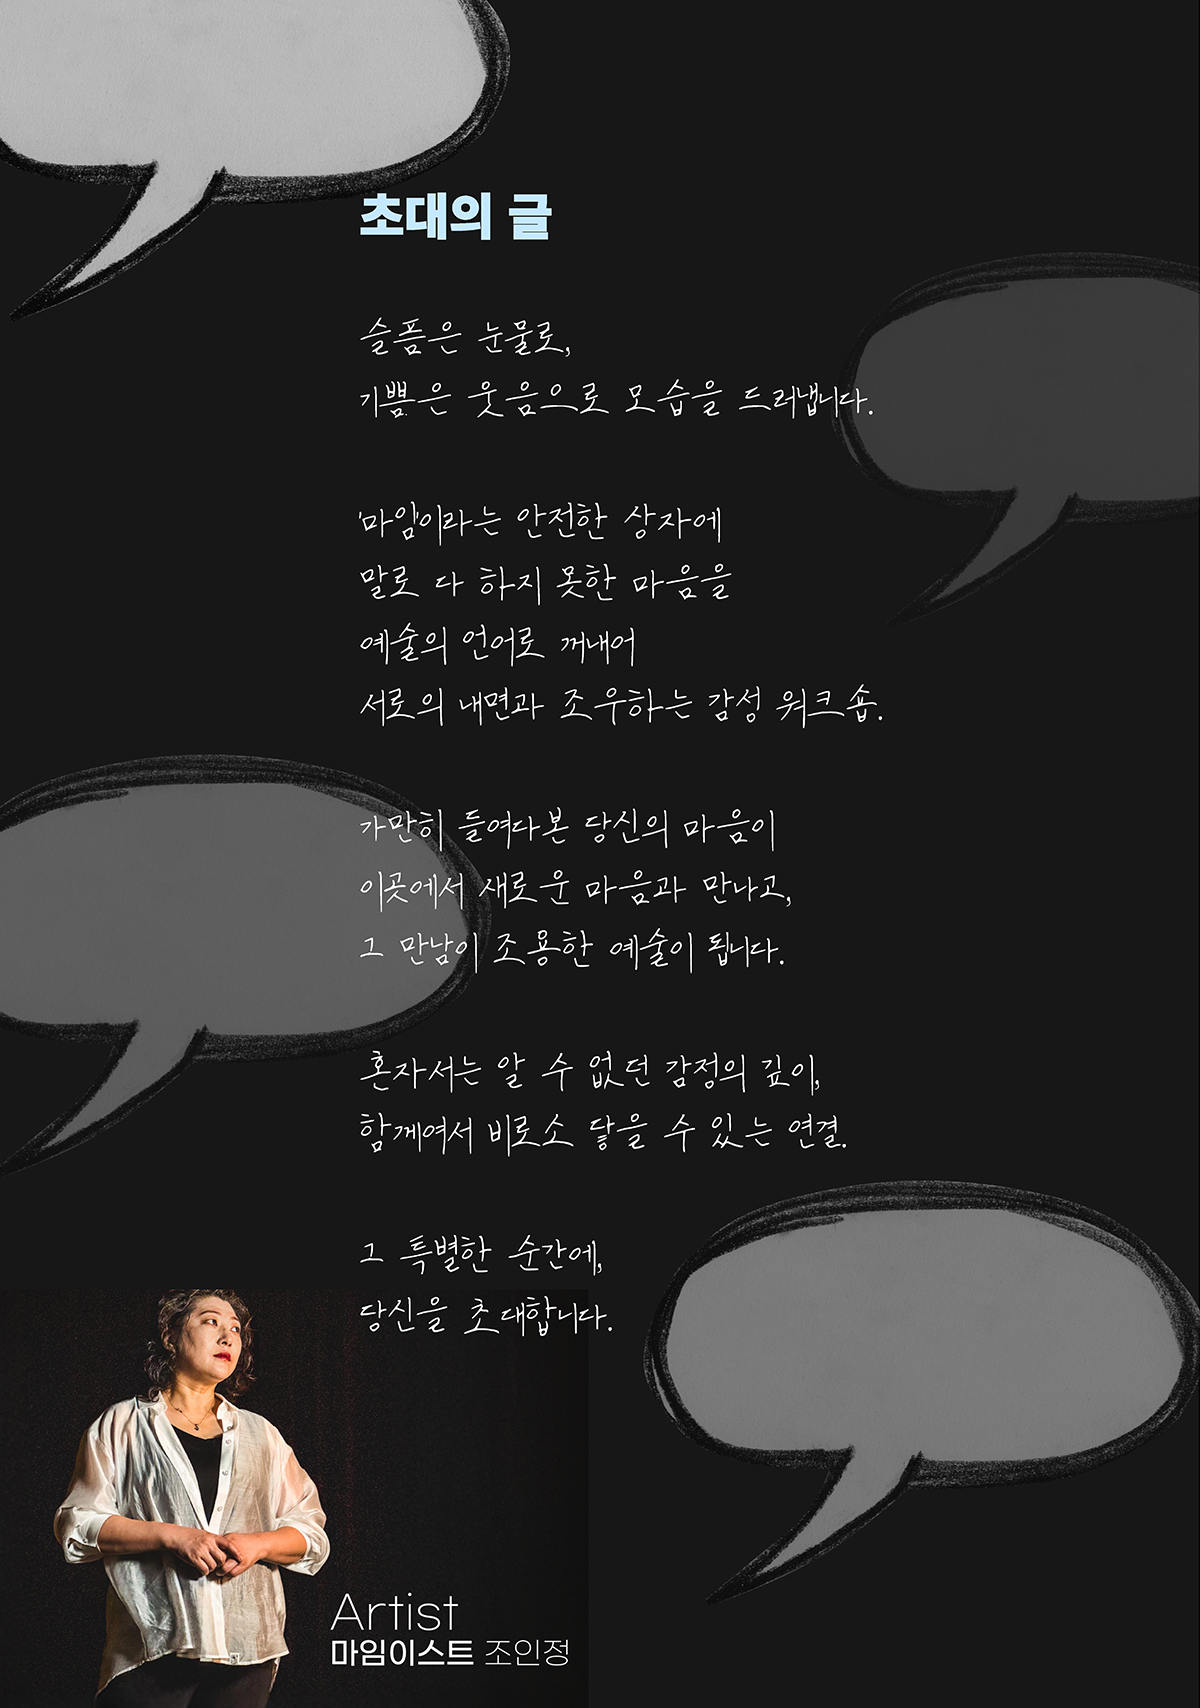 초대의 글
슬픔은 눈물로,
기쁨은 웃음으로 모습을 드러냅니다.
'마임'이라는 안전한 상자에
말로 다 하지 못한 마음을
예술의 언어로 꺼내어
서로의 내면과 조우하는 감성 워크숍.
가만히 들여다본 당신의 마음이
이곳에서 새로운 마음과 만나고,
그 만남이 조용한 예술이 됩니다.
혼자서는 알 수 없던 감정의 깊이,
함께여서 비로소 닿을 수 있는 연결.
그 특별한 순간에,
당신을 초대합니다.
Artist
마임이스트 조인정